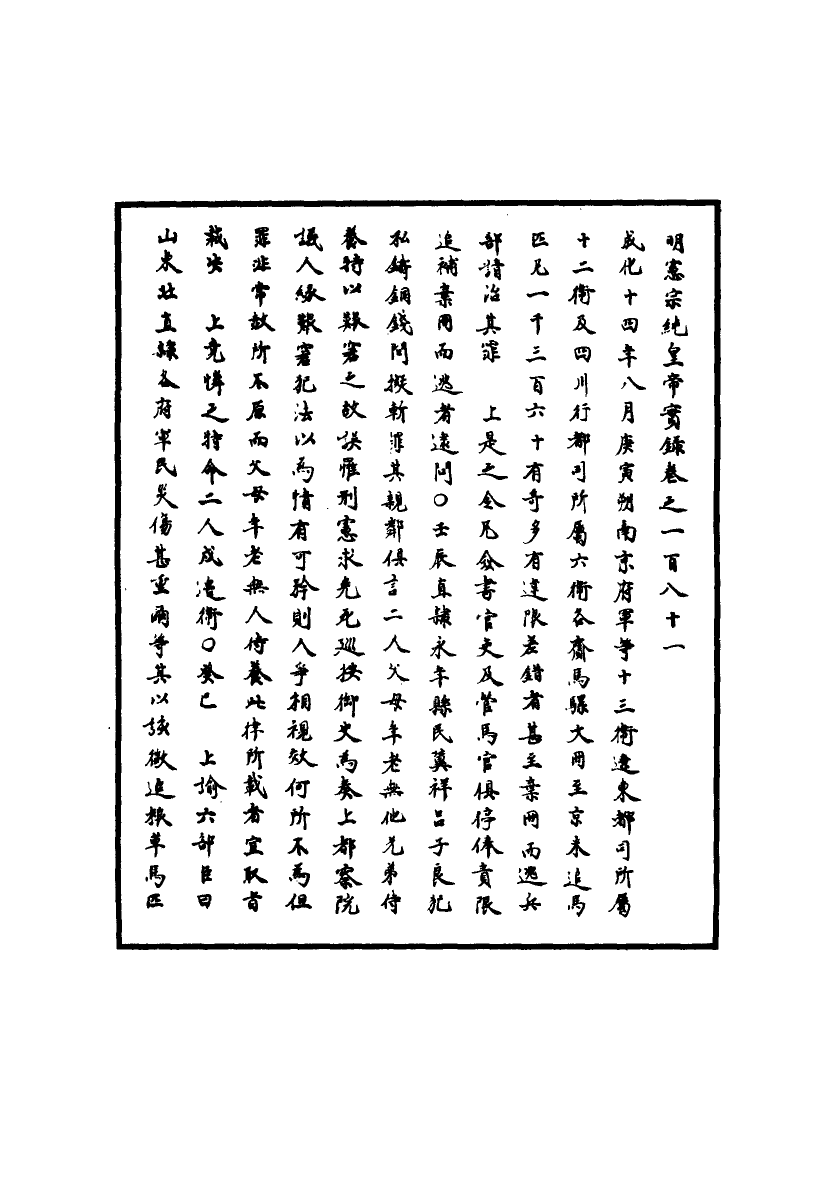 明憲宗純皇帝實錄卷之一百八十一
成化十四年八月庚寅朔南京府軍等十三衛遼東都司所屬
十二衛及四川行都司所屬六衛各齎馬騾文冊至京來追馬
匹凡一千三百六十有奇多有違限差錯者甚至棄冊而逃兵
部請治其罪　上是之令凡僉書官吏及管馬官俱停俸責限
追補棄冊而逃者逮問○壬辰直隸永年縣民冀祥呂子良犯
私鑄銅錢問擬斬罪其親鄰俱言二人父母年老無他兄弟侍
養特以艱窘之故誤罹刑憲求免死巡按御史為奏上都察院
議人緣艱窘犯法以為情有可矜則人爭相視效何所不為但
罪非常赦所不原而父母年老無人侍養此律所載者宜取旨
裁決　上竟憐之特命二人戍邊衛○癸巳　上諭六部臣曰
山東北直隸各府軍民災傷甚重爾等其以該徵追糧草馬匹